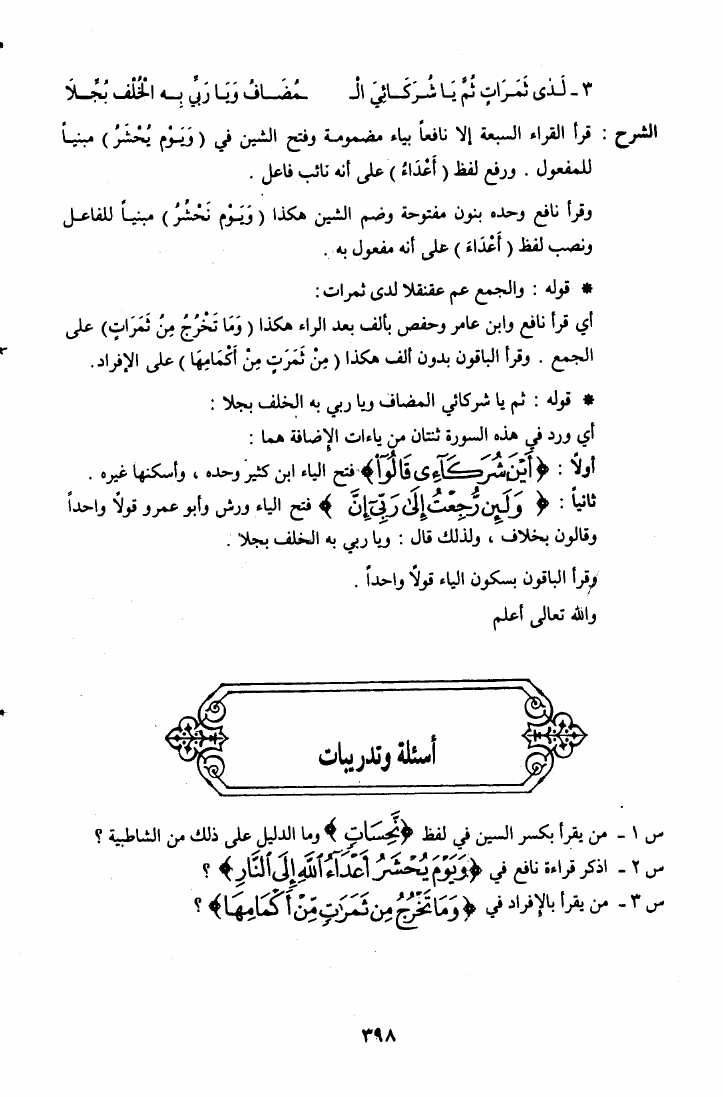 ٣ - لَدٰى ثَمَرَاتٍ ثُمَّ يَا شُرَكَـائِيَ الْـ ـمُضَـافُ وَيَـا رَبِّي بِـهِ الْخُلْف بُجِّـلَا
الشرح : قرأ القراء السبعة إلا نافعاً بياء مضمومة وفتح الشين في ( وَيَـوْم يُحْشَرُ ) مبنيـاً
للمفعول . ورفع لفظ ( أَعْدَاءُ ) على أنه نائب فاعل .
وقرأ نافع وحده بنون مفتوحة وضم الشين هكذا ( وَيَوْم نَحْشُرُ ) مبنيـاً للفاعـل
ونصب لفظ ( أَعْدَاءَ ) على أنه مفعول به .
* قوله : والجمع عم عقنقلا لدى ثمرات :
أي قرأ نافع وابن عامر وحفص بألف بعد الراء هكذا ( وَمَا تَخْرُجُ مِنْ ثَمَرَاتٍ) على
الجمع . وقرأ الباقون بدون ألف هكذا ( مِنْ ثَمَرَتٍ مِنْ أَكْمَامِهَا ) على الإفراد.
* قوله : ثم يا شركائي المضاف ويا ربي به الخلف بجلا :
أي ورد في هذه السورة ثنتان من ياءات الإضافة هما :
أولاً : ﴿ أَيْنَ شُرَكَآءِى قَالُوٓاْ ﴾ فتح الياء ابن كثير وحده ، وأسكنها غيره .
ثانياً : ﴿ وَلَئِن رُّجِعْتُ إِلَىٰ رَبِّىٓ إِنَّ ﴾ فتح الياء ورش وأبو عمرو قولاً واحداً
وقالون بخلاف ، ولذلك قال : ويا ربي به الخلف بجلا .
وقرأ الباقون بسكون الياء قولاً واحداً .
والله تعالى أعلم
أسئلة وتدريبات
س ١ - من يقرأ بكسر السين في لفظ ﴿نَّحِسَاتٍ﴾ وما الدليل على ذلك من الشاطبية ؟
س ٢ - اذكر قراءة نافع في ﴿وَيَوْمَ يُحْشَرُ أَعْدَآءُ ٱللَّهِ إِلَى ٱلنَّارِ﴾ ؟
س ٣ - من يقرأ بالإفراد في ﴿ وَمَا تَخْرُجُ مِن ثَمَرَٰتٍ مِّنْ أَكْمَامِهَا ﴾ ؟
٣٩٨